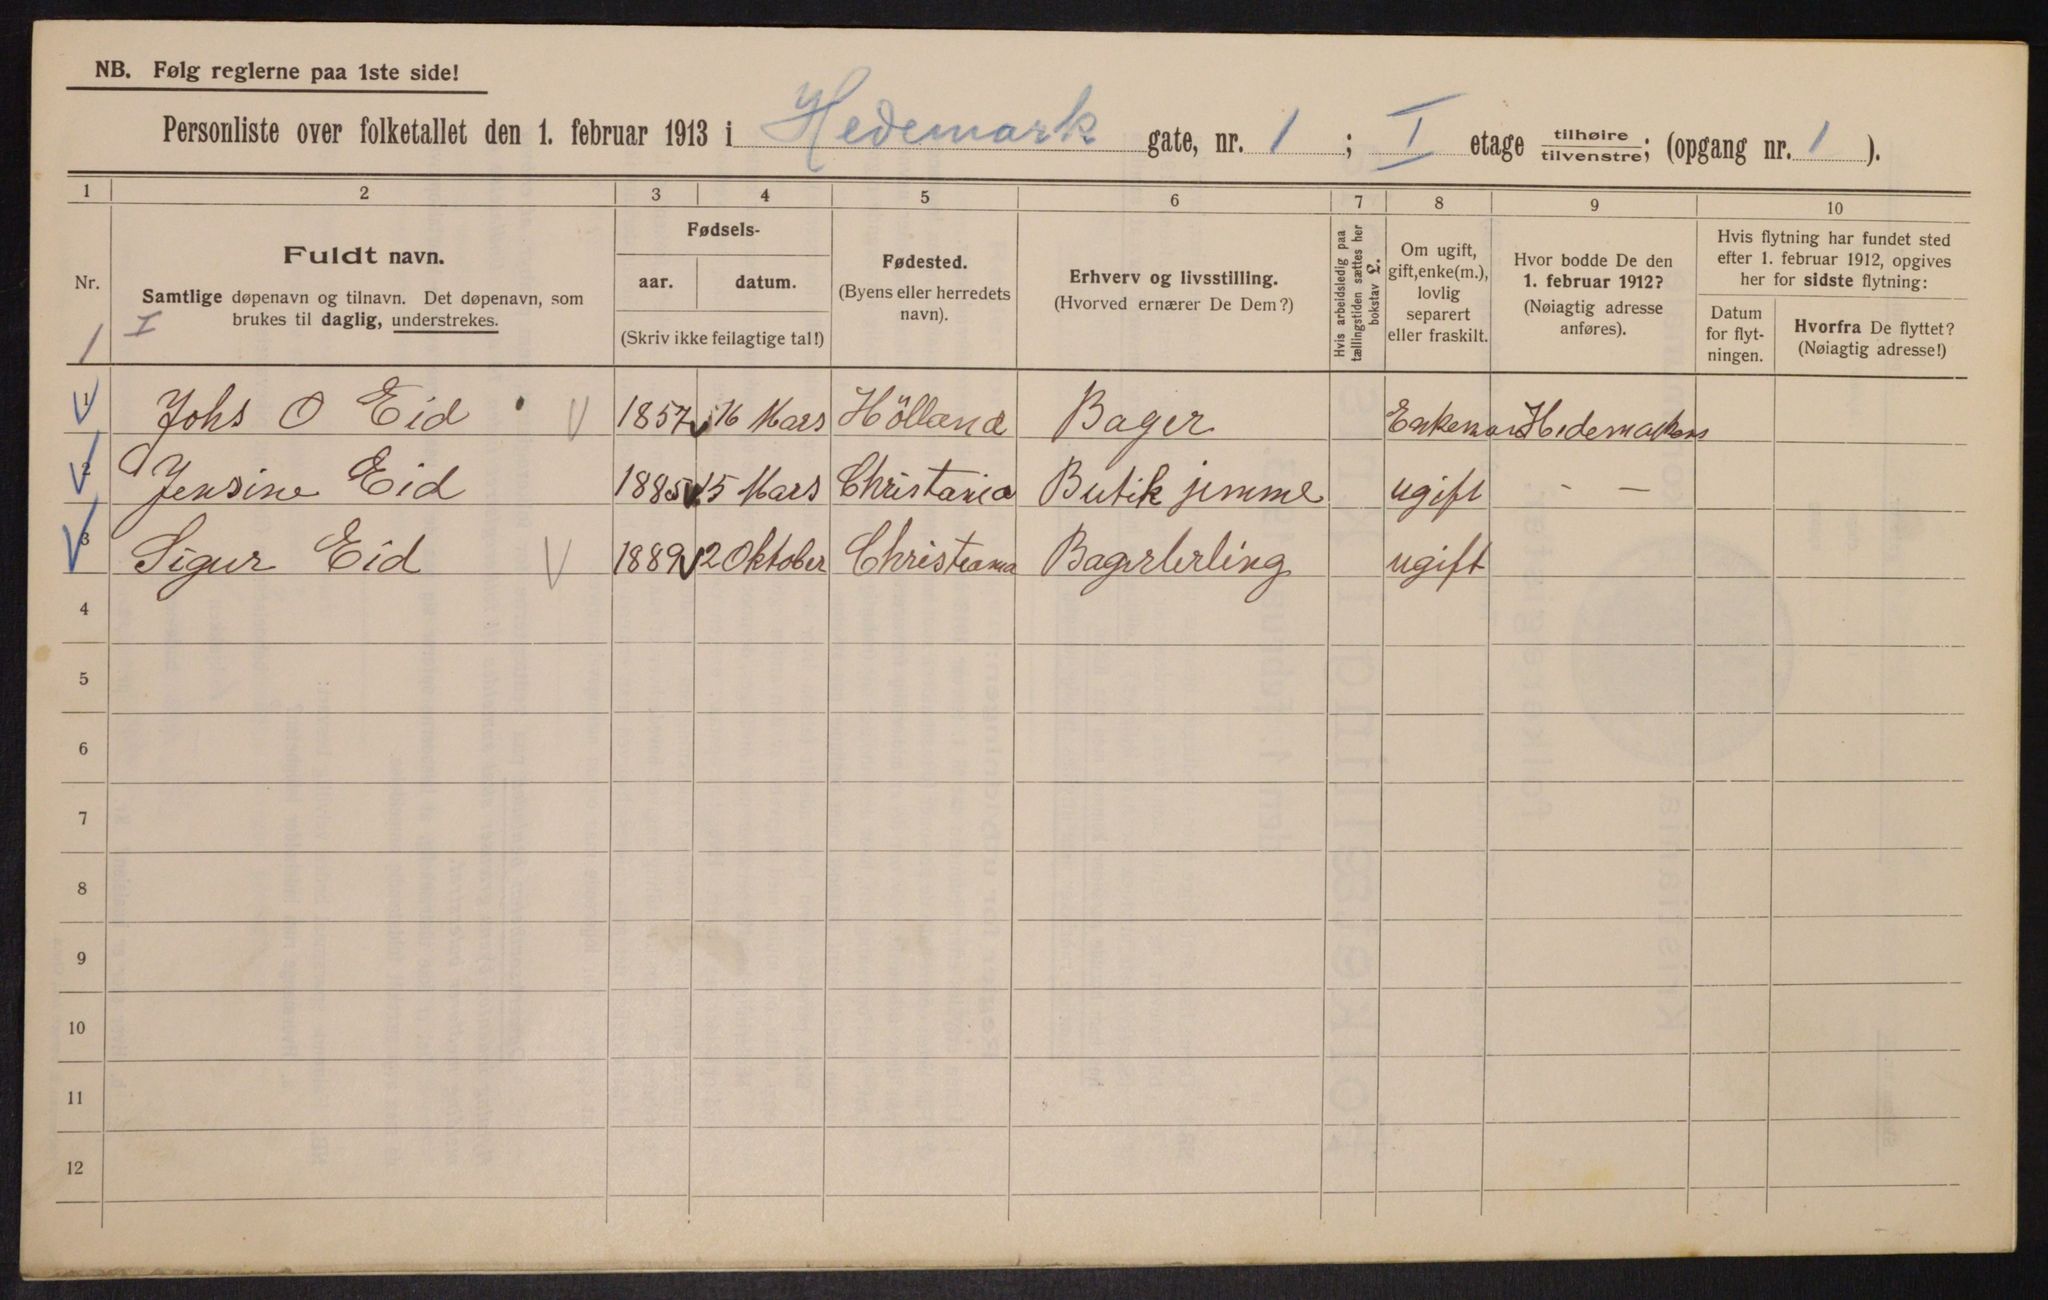 NB. Følg reglerne paa 1ste side!
Personliste over folketallet den 1. februar 1913 i Hedemark gate, nr. 1 ; I etage tilhøire/tilvenstre; (opgang nr. 1 ).
1 2 3 4 5 6 7 8 9 10
Nr.
1 I
Fuldt navn.
Samtlige døpenavn og tilnavn. Det døpenavn, som
brukes til daglig, understrekes.
Fødsels-
aar. datum.
(Skriv ikke feilagtige tal!)
Fødested.
(Byens eller herredets
navn).
Erhverv og livsstilling.
(Hvorved ernærer De Dem?)
Hvis arbeidsledig paa
tællingstiden sættes her
bokstav L.
Om ugift,
gift, enke(m.),
lovlig
separert
eller fraskilt.
Hvor bodde De den
1. februar 1912?
(Nøiagtig adresse
anføres).
Hvis flytning har fundet sted
efter 1. februar 1912, opgives
her for sidste flytning:
Datum
for flyt-
ningen.
Hvorfra De flyttet?
(Nøiagtig adresse!)
1 Johs O Eid 1857 16 Mars Hölland Bager Enkeman
2 Jensine Eid 1885 15 Mars Christania Butik jemme ugift - -
3 Sigur Eid 1889 2 Oktober Christiania Bagerlerling ugift
4
5
6
7
8
9
10
11
12